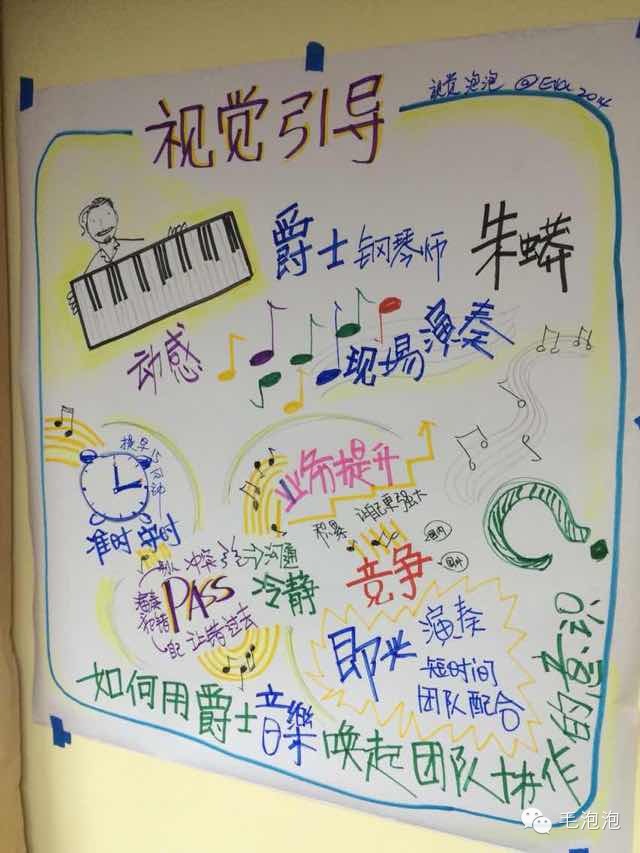 视觉泡泡 @Eva 2014
视觉引导
爵士钢琴师 朱蟒
动感
现场演奏
提早15分钟
准时守时
业务提升
积累
竞争
国内
国外
别人 冲突
沟通
冷静
演奏
PASS
让错过去
即兴
演奏
短时间
团队配合
如何用爵士音樂唤起团队协作的意识
毛泡泡